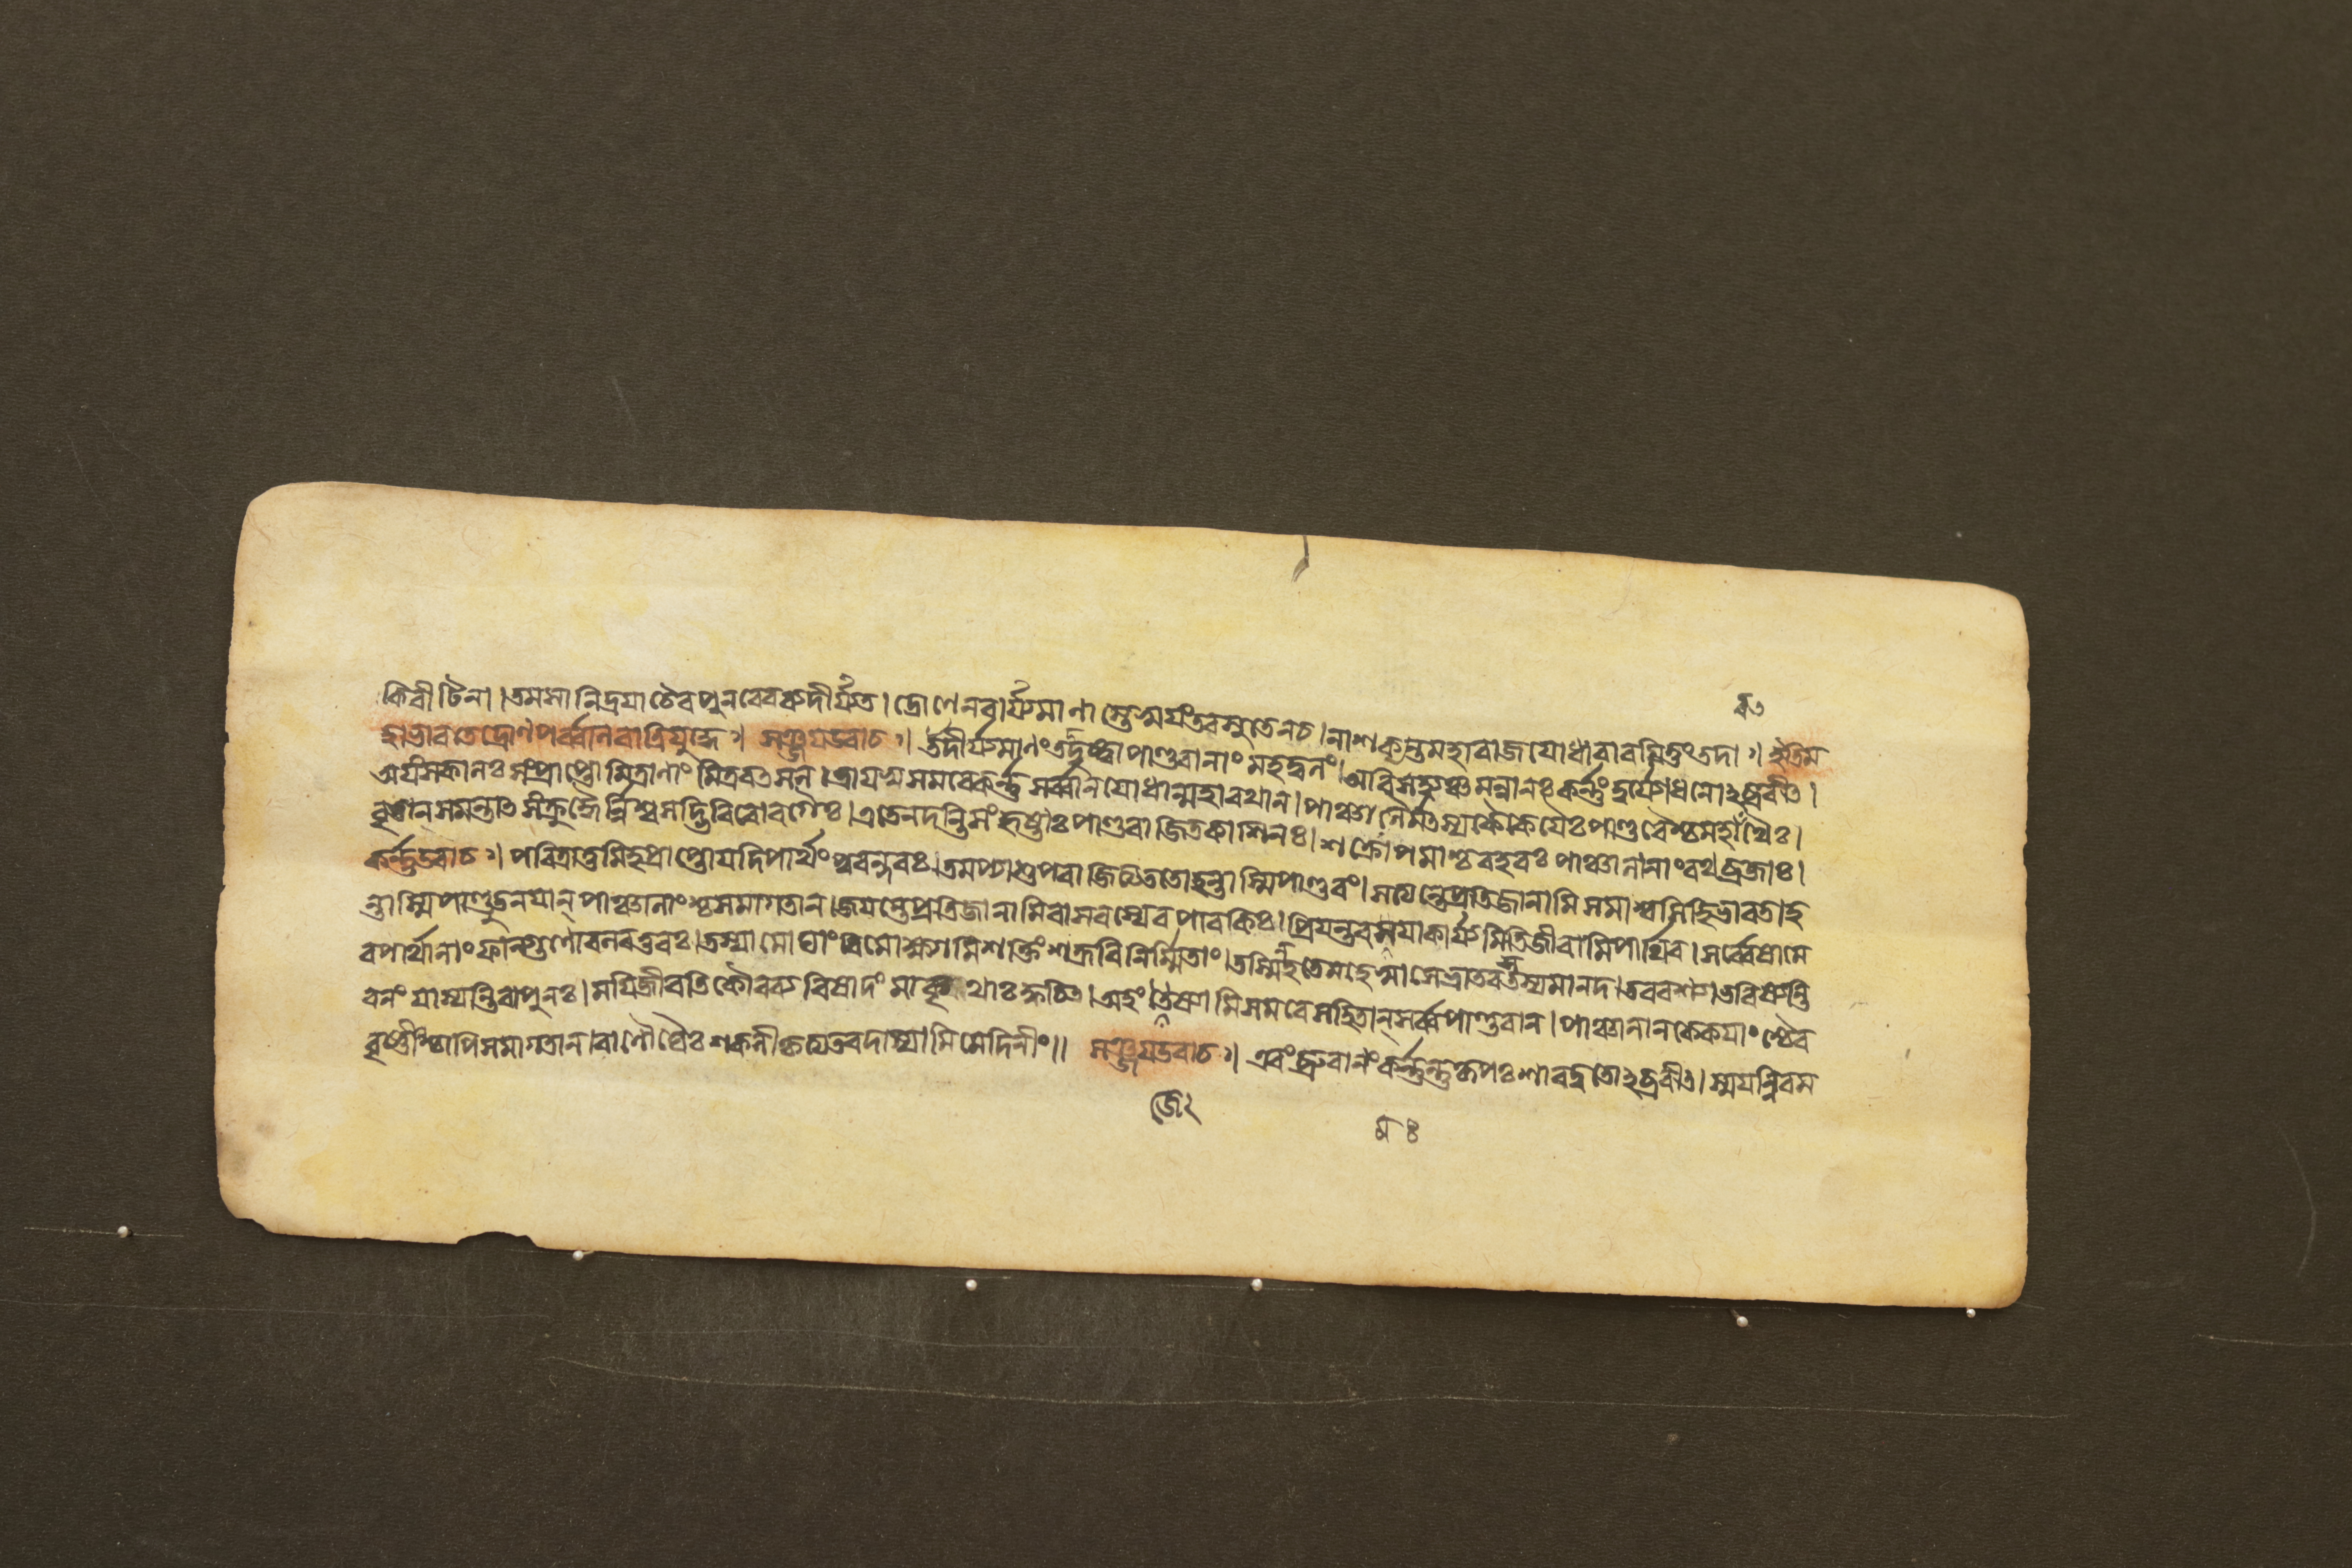 ৮৩
কিরীটিনা । তমসা নিদ্রয়া চৈব পুনরেব ব্যদীর্য্যত । দ্রোণেন বার্য্যমাণাস্তে স্বয়ং তব সুতেন চ । নাশক্যন্ত মহারাজ যোধা বারয়িতুং তদা ঃ। ইতি ম
হাভারতে দ্রোণপর্ব্বণি রাত্রিযুদ্ধে ঃ। সঞ্জয় উবাচ ঃ। উদীর্য্যমাণং তদ্দৃষ্ট্বা পাণ্ডবানাং মহদ্বলং । অবিসহ্যঞ্চ মন্বানঃ কর্ণ্ণং দুর্য্যোধনোঽব্রবীৎ ।
অয়ং স কালঃ সংপ্রাপ্তো মিত্রাণাং মিত্রবৎসল । ত্রায়স্ব সমরে কর্ণ্ণ সর্ব্বান্ যোধান্ মহারথান্ । পাঞ্চালৈর্মৎস্যকৈকেয়ৈঃ পাণ্ডবৈশ্চ মহারথৈঃ ।
বৃতান্ সমন্তাৎ সংক্রুদ্ধৈর্নিশ্বসদ্ভিরিবোরগৈঃ । এতে নদন্তি সংহৃষ্টাঃ পাণ্ডবা জিতকাশিনঃ । শক্রোপমাশ্চ বহবঃ পাঞ্চালানাং রথব্রজাঃ ।
কর্ণ্ণ উবাচ ঃ। পরিত্রাতুমিহ প্রাপ্তো যদি পার্থং পুরন্দরঃ । তমপ্যাশু পরাজিত্য ততো হন্তাস্মি পাণ্ডবং । সত্যন্তে প্রতিজানামি সমাশ্বসিহি ভারত । হ
ন্তাস্মি পাণ্ডুতনয়ান্ পাঞ্চালানাংশ্চ সমাগতান্ । জয়ন্তে প্রতিজানামি বাসবস্যেব পাবকিঃ । প্রিয়ন্তব ময়া কার্য্যমিতি জীবামি পার্থিব । সর্ব্বেষামে
ব পার্থানাং ফাল্গুণো বলবত্তরঃ । তস্যামোঘাং বিমোক্ষ্যামি শক্তিং শক্রবিনির্ম্মিতাং । তস্মিন্ হতে মহেষ্বাসে ভ্রাতরস্তস্য মানদ । তব বশ্যা ভবিষ্যন্তি
বনং যাস্যন্তি বা পুনঃ । ময়ি জীবতি কৌরব্য বিষাদং মা কৃথাঃ ক্বচিৎ । অহং জেষ্যামি সমরে সহিতান্ সর্ব্বপাণ্ডবান্ । পাঞ্চালান্ কেকয়াংশ্চৈব
বৃষ্ণীংশ্চাপি সমাগতান্ । বাণৌঘৈঃ শকলীকৃত্য তব দাস্যামি মেদিনীং ॥ সঞ্জয় উবাচ ঃ। এবং ব্রুবাণং কর্ণ্ণন্তু কৃপঃ শারদ্বতোঽব্রবীৎ । স্ময়ন্নিব ম